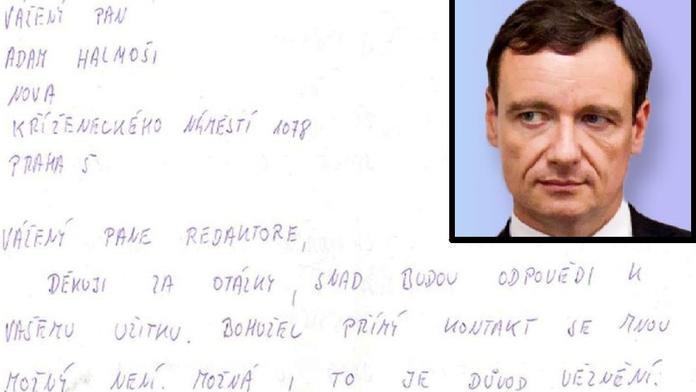 VÁŽENÝ PAN
ADAM HALMOŠI
NOVA
KŘÍŽENECKÉHO NÁMĚSTÍ 1078
PRAHA 5
VÁŽENÝ PANE REDAKTORE,
DĚKUJI ZA OTÁZKY, SNAD BUDOU ODPOVĚDI K
VAŠEMU UŽITKU. BOHUŽEL PŘÍMÝ KONTAKT SE MNOU
MOŽNÝ NENÍ. MOŽNÁ I TO JE DŮVOD VĚZNĚNÍ.